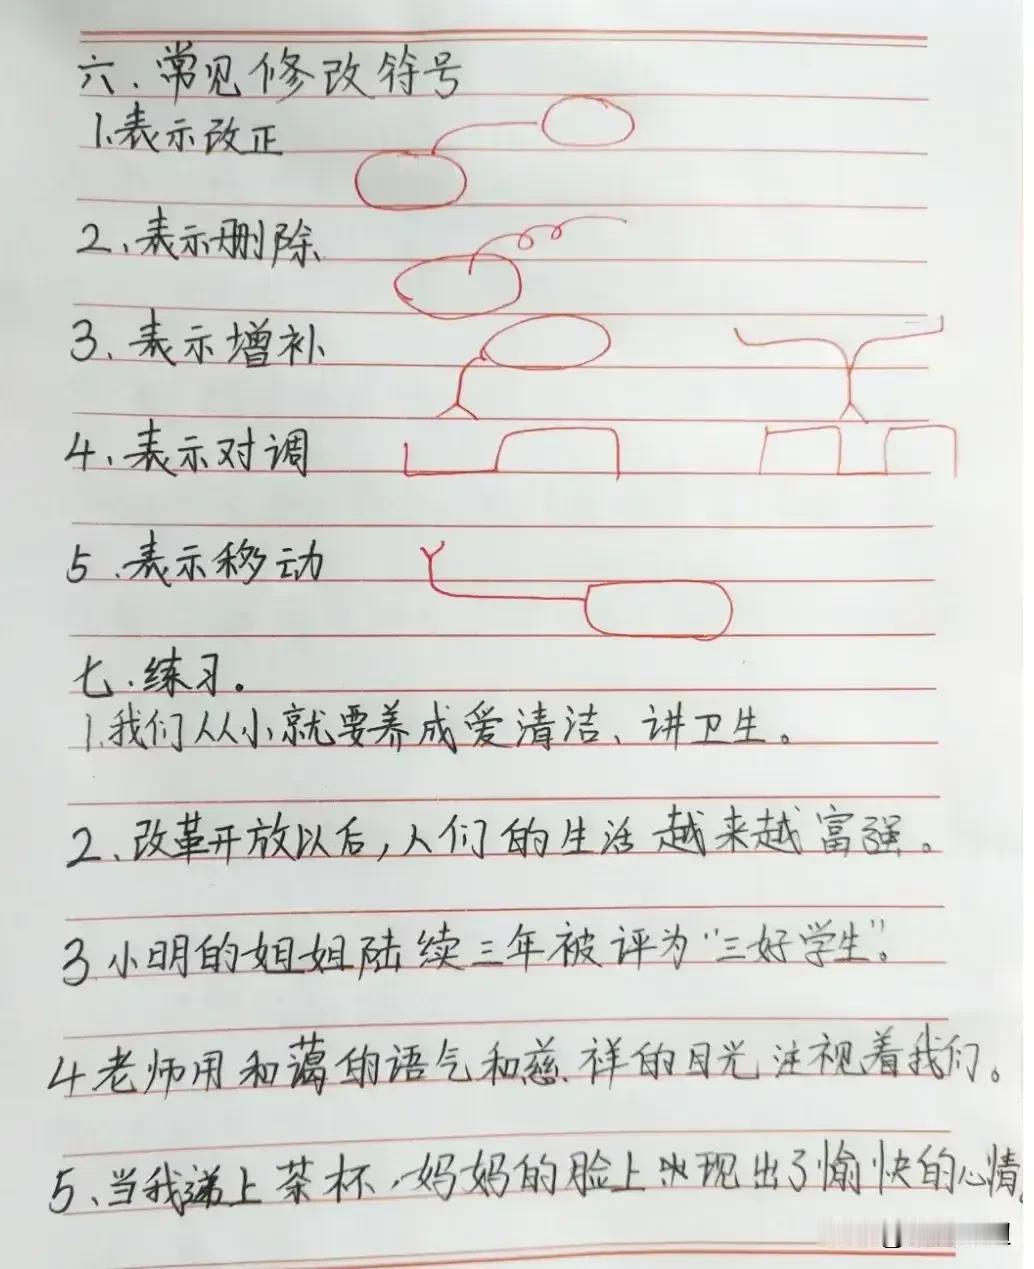 六.常见修改符号
1.表示改正
2、表示删除
3、表示增补
4、表示对调
5、表示移动
七、练习。
1.我们从小就要养成爱清洁、讲卫生。
2、改革开放以后,人们的生活越来越富强。
3小明的姐姐陆续三年被评为“三好学生”。
4老师用和蔼的语气和慈祥的目光注视着我们。
5、当我递上茶杯,妈妈的脸上现出了愉快的心情。